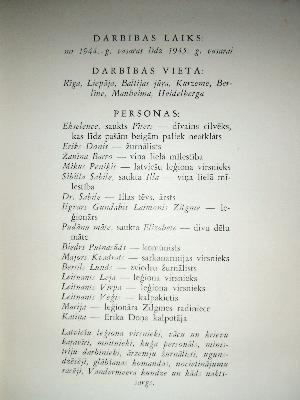 DARBĪBAS LAIKS:
no 1944. g. vasaras līdz 1945. g. vasarai
DARBĪBAS VIETA:
Rīga, Liepāja, Baltijas jūra, Kurzeme, Ber-
līne, Manheima, Heidelberga
PERSONAS:
Ekselence, saukts Pīters — dīvains cilvēks,
kas līdz pašām beigām paliek neatklāts
Ēriks Donis — žurnālists
Žanīna Barro — viņa lielā mīlestība
Mikus Peniķis — latviešu leģiona virsnieks
Sibilla Sabile, saukta Illa — viņa lielā mī-
lestība
Dr. Sabile — Illas tēvs, ārsts
Ilgvars Gundabis Laimonis Zilgme — le-
ģionārs
Padānu māte, saukta Elizabete — divu dēlu
māte
Biedrs Putnarāds — komūnists
Majors Kvadrats — sarkanarmijas virsnieks
Bertils Lunds — zviedru žurnālists
Leitnants Leja — leģiona virsnieks
Leitnants Virpa — leģiona virsnieks
Leitnants Veģis — kalpakietis
Marija — leģionāra Zilgmes radiniece
Katiņa — Ērika Doņa kalpotāja
Latviešu leģiona virsnieki, vācu un krievu
kaŗavīri, mūžnieki, kuģa personāls, minis-
triju darbinieki, ārzemju žurnālisti, uguns-
dzēsēji, glābšanas komandas, nocietinājumu
racēji, Vandermeera kundze un kāds nakts-
sargs.